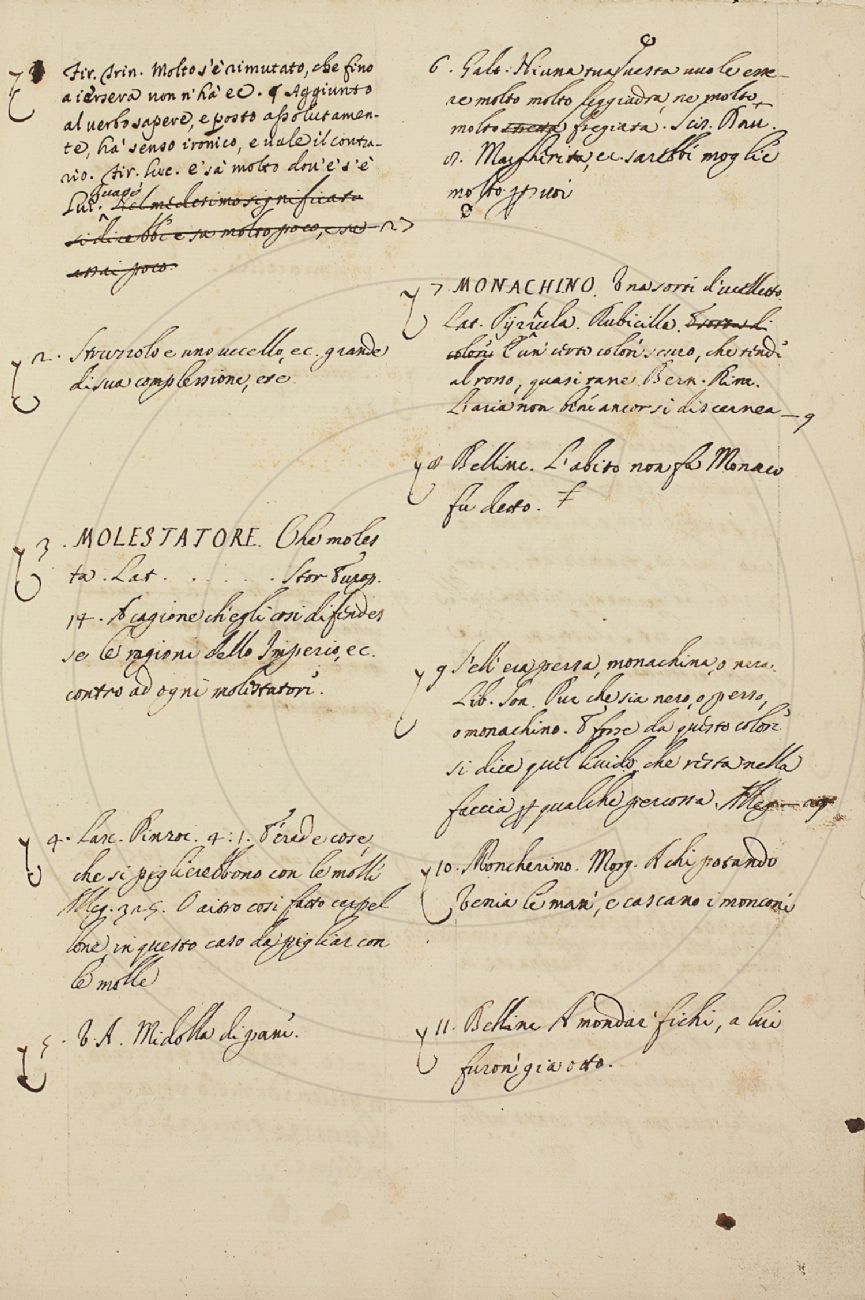 1 Fir. Trin. Molto s'è rimutato, che fino
a iersera non n'hà ec. ¶ Aggiunto
al verbo sapere, e posto assolutamen-
te, hà senso ironico, e vale il contra-
rio. Fir. Luc. e' sà molto dov'è s'è
Luc. Nel medesimo significato
si direbbe e sa molto poco, e sa
assai poco.
2. Struzzolo e uno uccello, ec. grande
di sua complessione, ec
3. MOLESTATORE. Che moles
ta. Lat. . . . . . . Stor. Europ.
14. A cagione ch'egli così difendes
se le ragioni dello Imperio, ec.
contro ad ogni molestatore.
4. Lasc. Pinzoc. 4. 1. Verade cose,
che si piglierebbono con le molli
Alleg. 325. O altro così fatto cappel
lone, in questo caso da pigliar con
le molle
5. V. A. Midolla di pane.
6. Galt. Niuna tua vesta vuole esse-
re molto molto leggiadra, ne molto
molto fregiata.
8. Margherita, ec. sarebbe moglie
molto p voi
7. MONACHINO. Una sorte d'uccelletto.
Lat. Pyrrula. Rubicilla.
colore E un certo colore scuro, che tende
al rosso, quasi tane Bern. Rim.
L'aria non bene ancor si discernea — 9
8 Bellinc. L'abito non fa Monaco
fu detto.
9 S'ell' era persa, monachina, o nera.
Lib. Son. Pur che sia nero, o perso,
o monachino. E forse da questo colore
si dice quel livido, che resta nella
faccia p qualche percossa. Alleg.
10. Moncherino. Morg. A chi potando
Venia le mani, e cascano i monconi
11. Bellinc A mondar' fichi, a lui
furon' gia otto.